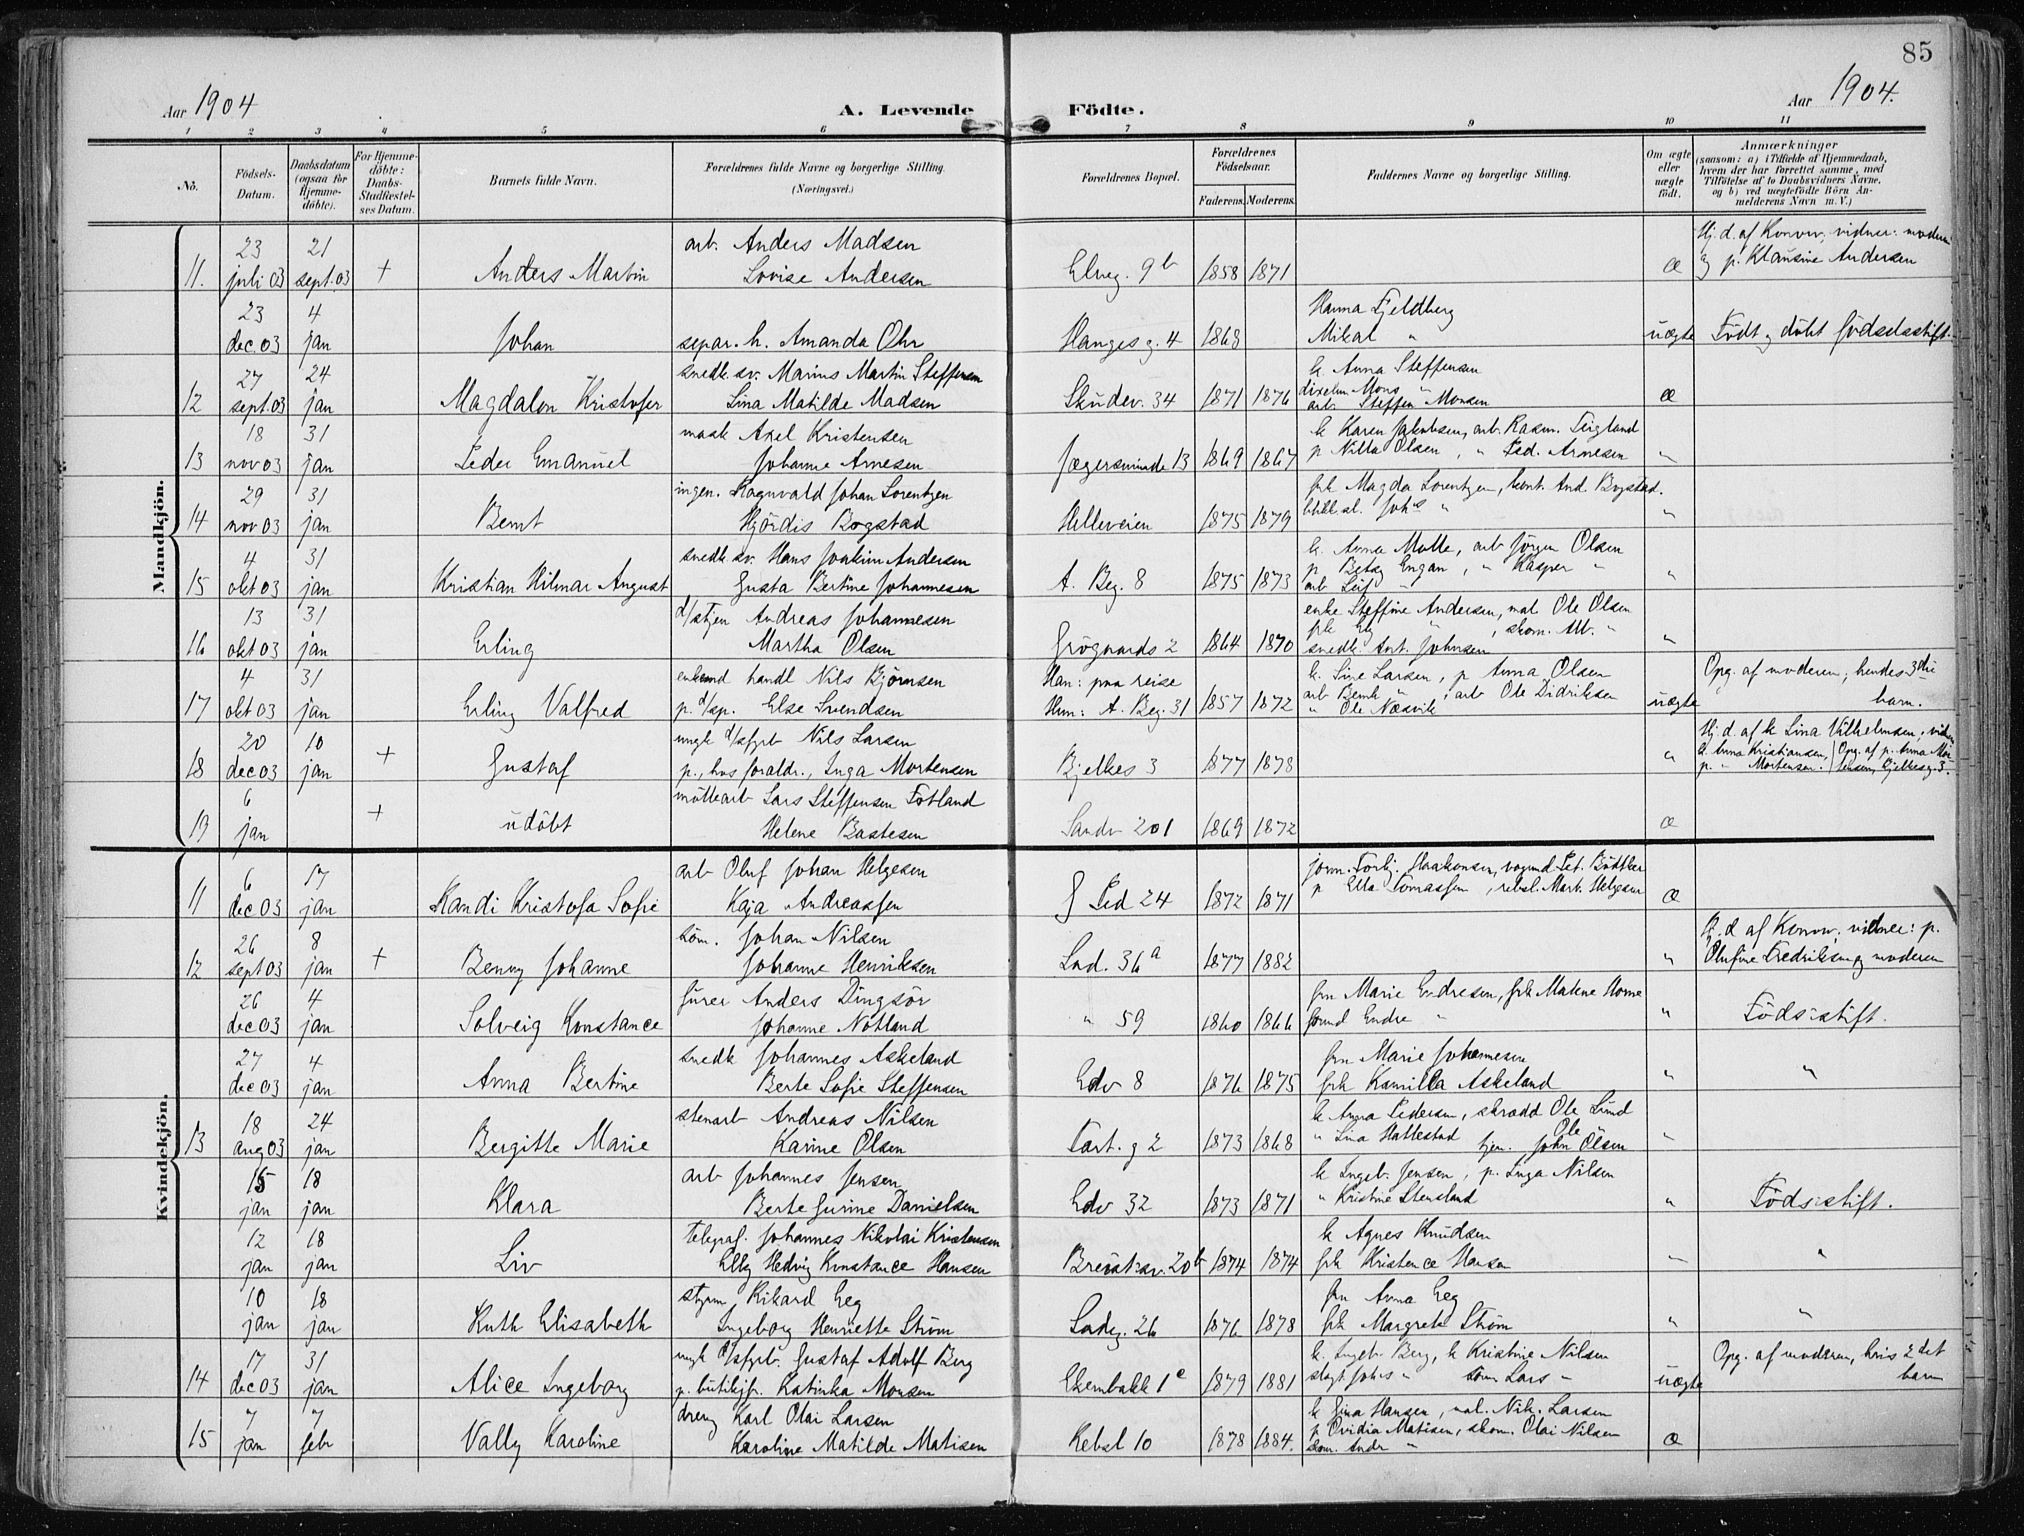 85
Aar 1904
A. Levende Födte.
Aar 1904.
1 2 3 4 5 6 7 8 9 10 11
No.
Födsels-Datum.
Daabsdatum (ogsaa for Hjemme-döbte).
For Hjemme-döbte: Daabs-Stadfæstel-ses Datum.
Barnets fulde Navn.
Forældrenes fulde Navne og borgerlige Stilling. (Næringsvei.)
Forældrenes Bopæl.
Forældrenes Födselsaar.
Faderens. Moderens.
Faddernes Navne og borgerlige Stilling.
Om ægte eller uægte födt.
Anmærkninger
(saasom: a) i Tilfælde af Hjemmedaab, hvem der har forrettet samme, med Tilföielse af to Daabsvidners Navne, og b) ved uægtefödte Börn An-melderens Navn m. V.)
Mandkjön.
23 21 arb. Anders Madsen Hj. d. af Konow, vidner: moderen
11. juli 03 sept. 03 + Anders Martin Lovise Andersen Elveg. 9b 1858 1871 æ og p. Klausine Andersen
23 4 Hanna Fjeldberg
dec. 03 jan Johan separ. h. Amanda Ohr Hanges g. 4 1868 Mikal " uægte Födt og döbt födselsstift.
27 24 snedk. sv. Marius Martin Steffensen k. Anna Steffensen
12 sept. 03 jan Magdalon Kristofer Lina Matilde Madsen Skudev. 34 1871 1876 Mons " æ
arb. Steffen Monsen
18 31 mask Axel Kristensen k Karen Jakobsen, arb. Rasm.
13 nov 03 jan Peder Emanuel Johanne Arnesen Jægersminde 13 1869 1867 p Nilla Olsen, " Ped. Arnesen "
29 31 ingen. Ragnvald Johan Lorentzen frk Magda Lorentzen, kont. And. Bogstad.
14 nov 03 jan Bernt Hjördis Bogstad Helleveien 1875 1879 Johs " "
4 31 snedk sv. Hans Joakim Andersen k. Anna Molle, arb Jörgen Olsen
15 okt 03 jan Kristian Hilmar August Gusta Bertine Johannesen A. Beg. 8 1875 1873 p Betsy Engan, " Kasper " "
arb Leif "
13 31 d/stjen Andreas Johannesen enke Steffine Andersen, mat Ole Olsen
16 okt 03 jan Erling Martha Olsen 1864 1870 frk Ely ", skom. "
snedk. Ant. Johnsen "
4 31 enkemd handl Nils Bjørnsen Han: paa reise k. Sine Larsen, p Anna Olsen Opg. af moderen; hendes 3die
17 okt 03 jan Erling Valfred p. d/sp. Else Svendsen Hun: A. Beg. 31 1857 1872 arb Bernh ", arb Ole Didriksen uægte barn.
" Ole Næsvik
20 10 ungk d/sfyrb. Nils Larsen Hj. d. af k Lina Vilhelmsen, vidn
18 dec 03 jan + Gustaf p., hos foraldr., Inga Mortensen Bjelkes 3 1877 1878 " k. Anna Kristiansen, Opg. af p. Anna Mor
p. " Mortensen. tensen, Bjelkesg. 3.
6 möllearb Lars Steffensen Fotland
19 jan + udöbt Helene Bastesen Sandv 201 1869 1872 æ
Kvindekjön.
6 17 arb Oluf Johan Helgesen jomn. Torbj. Haakonsen, vognmd Pet.
11 dec 03 jan Randi Kristofa Sofie Kaja Andreassen G Ped 24 1872 1871 p Ella Tomassen, rebsl. Mart. Helgesen æ
26 8 söm. Johan Nilsen Hj. d af Konow, vidner: p.
12 sept 03 jan + Benny Johanne Johanne Henriksen Lad. 36a 1877 1882 " Olufine Fredriksen og moderen
26 4 furer Anders Dingsör fru Marie Endresen, frk Malene Horne
dec 03 jan Solveig Konstance Johanne Notland " 59 1860 1866 Endre " " Födsstift.
27 4 snedk Johannes Askeland fru Marie Johannesen
dec 03 jan Anna Bertine Berte Sofie Steffensen Edv 8 1876 1875 frk Kamilla Askeland " "
18 24 stenarb Andreas Nilsen k Anna Pedersen, skrædd Ole Lund
13 aug 03 jan Bergitte Marie Karine Olsen Tart. g 2 1873 1868 " Lina Hattestad tjen. John Olsen "
Ole
15 18 arb Johannes Jensen k Ingeb. Jensen, p. Inga Nilsen
jan jan Klara Berte Gurine Danielsen Edv 32 1873 1871 " Kristine Stensland " Födsstift.
12 18 telegraf. Johannes Nikolai Kristensen k Agnes Knudsen
jan jan Liv Elly Hedvig Konstance Hansen Breivatnsv. 20b 1874 1874 frk Kristence Hansen " "
10 18 styrm Rikard Eeg fru Anna Eeg
jan jan Ruth Elisabeth Ingeborg Henriette Ström Ladeg. 26 1876 1878 frk Margrete Ström " "
17 31 ungk d/sfyrb. Gustaf Adolf Berg k. Ingeb. Berg, k Kristine Nilsen Opg. af moderen, hvis 2det
14 dec 03 jan Alice Ingeborg p. butikjfr. Katinka Monsen Ekernbakk 1c 1879 1881 slagt Johs " söm Lars " uægte barn
7 7 dreng Karl Olai Larsen k Gina Hansen, mal. Nik. Larsen
15 jan febr Vally Karoline Karoline Matilde Matisen Rebsl 10 1878 1884. p Ovidia Matisen, skom. Olai Nilsen æ
skom. Andr "